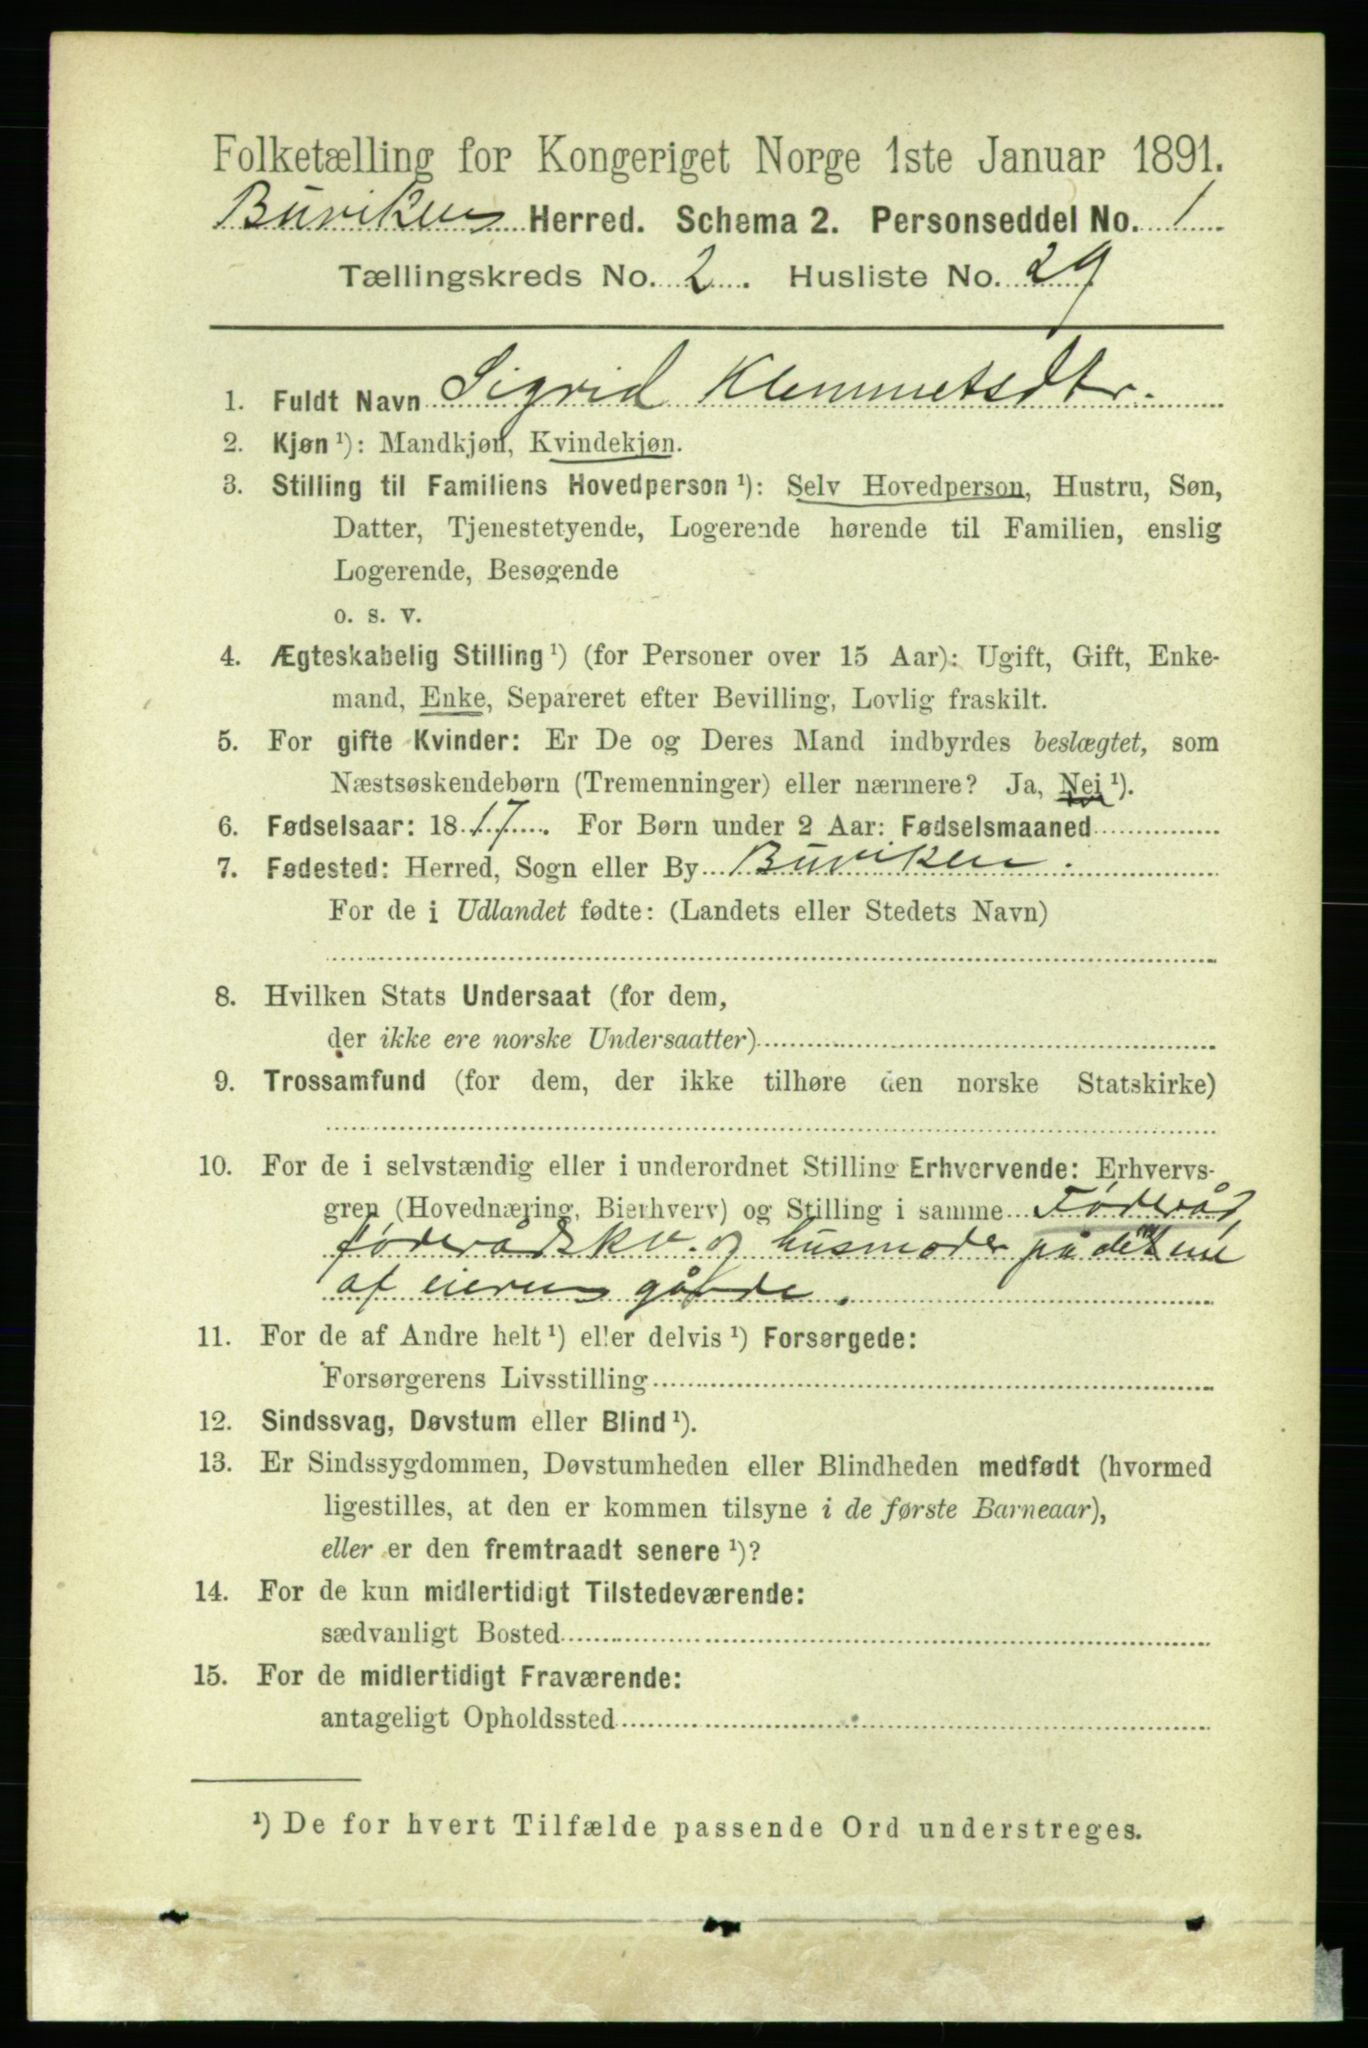 Folketælling for Kongeriget Norge 1ste Januar 1891.
Buviken Herred. Schema 2. Personseddel No. 1
Tællingskreds No. 2. Husliste No. 29
1. Fuldt Navn Sigrid Klemmetsdtr.
2. Kjøn ¹): Mandkjøn, Kvindekjøn.
3. Stilling til Familiens Hovedperson ¹): Selv Hovedperson, Hustru, Søn,
Datter, Tjenestetyende, Logerende hørende til Familien, enslig
Logerende, Besøgende
o. s. v.
4. Ægteskabelig Stilling ¹) (for Personer over 15 Aar): Ugift, Gift, Enke-
mand, Enke, Separeret efter Bevilling, Lovlig fraskilt.
5. For gifte Kvinder: Er De og Deres Mand indbyrdes beslægtet, som
Næstsøskendebørn (Tremenninger) eller nærmere? Ja, Nei ¹).
6. Fødselsaar: 1817. For Børn under 2 Aar: Fødselsmaaned
7. Fødested: Herred, Sogn eller By Buviken.
For de i Udlandet fødte: (Landets eller Stedets Navn)
8. Hvilken Stats Undersaat (for dem,
der ikke ere norske Undersaatter)
9. Trossamfund (for dem, der ikke tilhøre den norske Statskirke)
10. For de i selvstændig eller i underordnet Stilling Erhvervende: Erhvervs-
gren (Hovednæring, Bierhverv) og Stilling i samme Føderåd,
føderådskv. og husmoder på det ene
af eierens gårde.
11. For de af Andre helt ¹) eller delvis ¹) Forsørgede:
Forsørgerens Livsstilling
12. Sindssvag, Døvstum eller Blind ¹).
13. Er Sindssygdommen, Døvstumheden eller Blindheden medfødt (hvormed
ligestilles, at den er kommen tilsyne i de første Barneaar),
eller er den fremtraadt senere ¹)?
14. For de kun midlertidigt Tilstedeværende:
sædvanligt Bosted
15. For de midlertidigt Fraværende:
antageligt Opholdssted
¹) De for hvert Tilfælde passende Ord understreges.